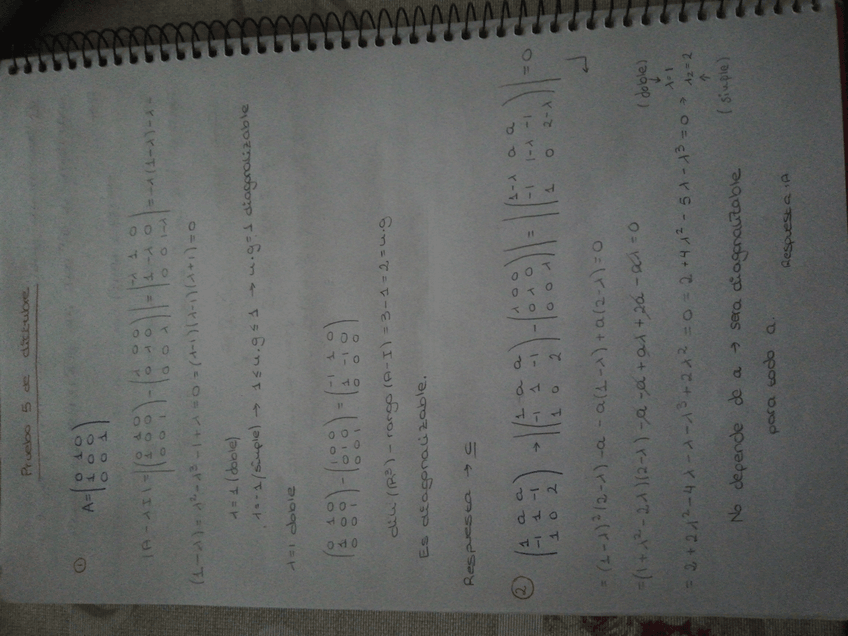 Prueba 5 de diciembre
① A=(0 1 0 / 1 0 0 / 0 0 1)
|A-λI|=|(0 1 0 / 1 0 0 / 0 0 1)-(λ 0 0 / 0 λ 0 / 0 0 λ)|=|-λ 1 0 / 1 -λ 0 / 0 0 1-λ|=-λ(1-λ)-λ=
(1-λ)=λ²-λ³-1+λ=0=(λ-1)(λ-1)(λ+1)=0
λ=1 (doble)
λ=-1 (simple) → 1≤u.g≤1 → u.g=1 diagonalizable
λ=1 doble
(0 1 0 / 1 0 0 / 0 0 1)-(1 0 0 / 0 1 0 / 0 0 1)=(-1 1 0 / 1 -1 0 / 0 0 0)
dim(ℝ³)-rango(A-I)=3-1=2=u.g
Es diagonalizable.
Respuesta → C
② (1 a a / -1 1 -1 / 1 0 2) → |(1 a a / -1 1 -1 / 1 0 2)-(λ 0 0 / 0 λ 0 / 0 0 λ)|=|(1-λ a a / -1 1-λ -1 / 1 0 2-λ)|=0
=(1-λ)²(2-λ)-a-a(1-λ)+a(2-λ)=0
=(1+λ²-2λ)(2-λ)-a-a+aλ+2a-aλ=0
(doble)
λ=1
=2+2λ²-4λ-λ-λ³+2λ²=0=2+4λ²-5λ-λ³=0 → λ₂=2
(simple)
No depende de a → sera diagonalizable
para toda a.
Respuesta: A